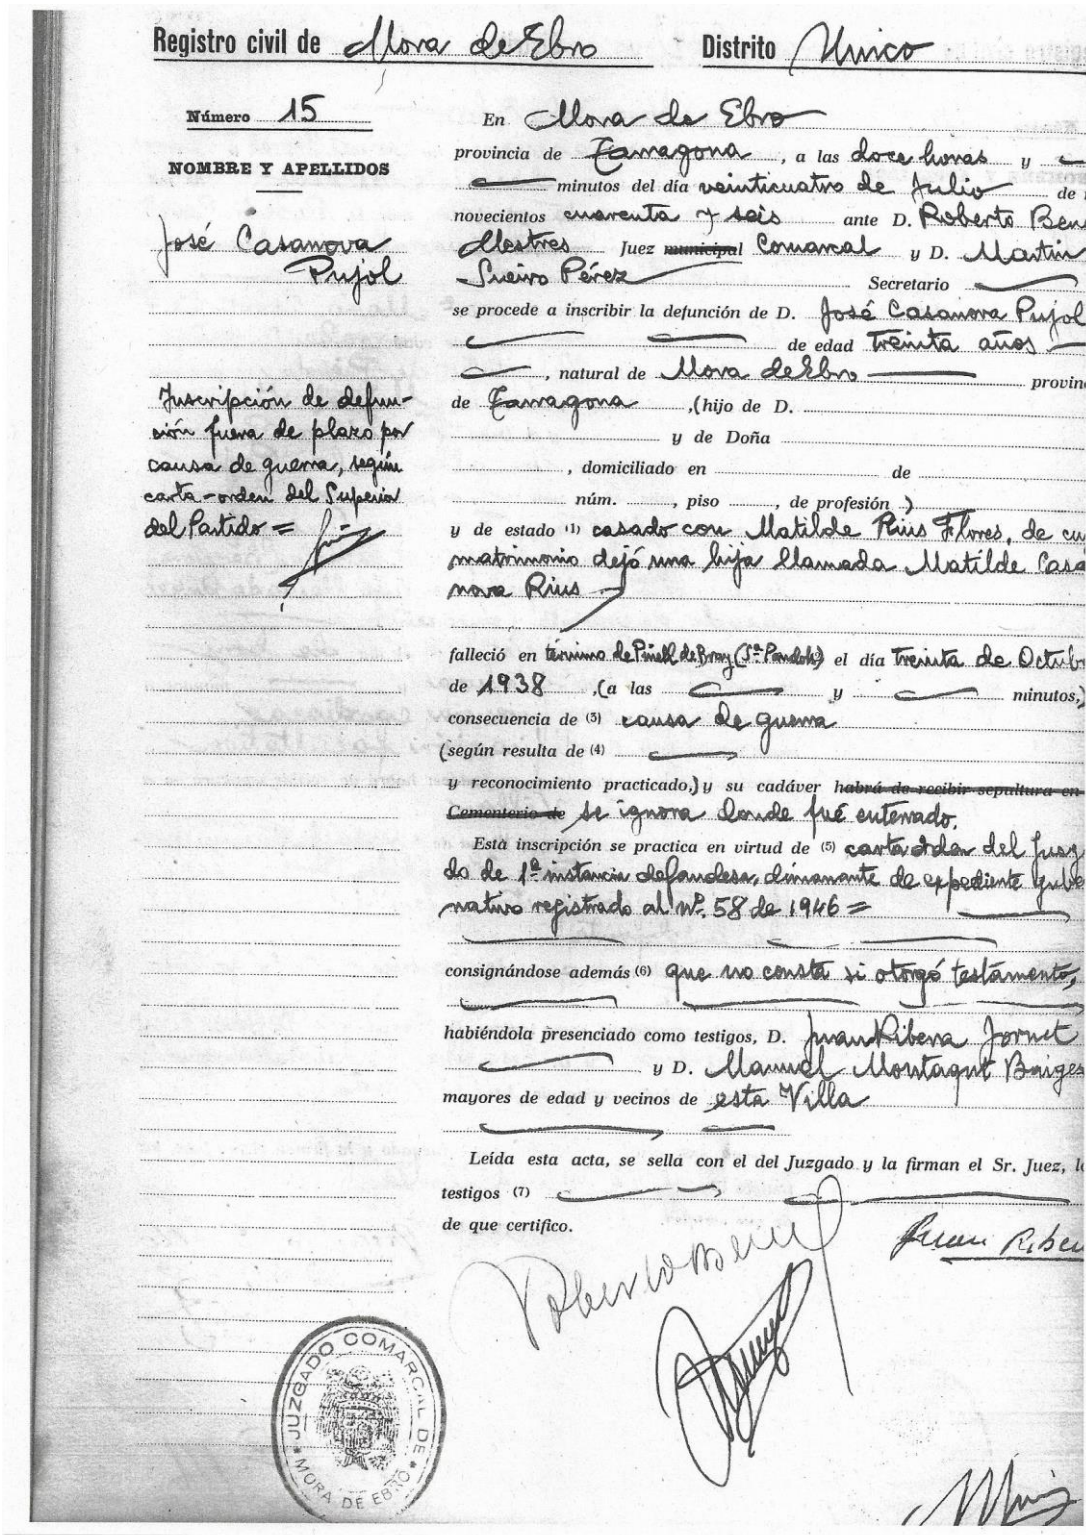 Registro civil de Mora de Ebro Distrito Unico
Número 15
NOMBRE Y APELLIDOS
José Casanova
Pujol
Inscripción de defun-
ción fuera de plazo por
causa de guerra, según
carta-orden del Superior
del Partido =
En Mora de Ebro
provincia de Tarragona, a las doce horas y
minutos del día veinticuatro de Julio de
novecientos cuarenta y seis ante D. Roberto
Mestres Juez municipal Comarcal y D. Martin
Sueiro Pérez Secretario
se procede a inscribir la defunción de D. José Casanova Pujol
de edad treinta años
, natural de Mora de Ebro provin
de Tarragona, (hijo de D.
y de Doña
, domiciliado en de
núm. , piso , de profesión )
y de estado (1) casado con Matilde Rius Flores, de cu
matrimonio dejó una hija llamada Matilde Casa
nova Rius
falleció en término de Pinell de Bray (Sª Pandols) el día treinta de Octub
de 1938 ,(a las y minutos,)
consecuencia de (3) causa de guerra
(según resulta de (4)
y reconocimiento practicado,) y su cadáver habrá de recibir sepultura en
Cementerio de se ignora donde fué enterrado.
Esta inscripción se practica en virtud de (5) carta orden del Juzg
do de 1ª instancia de Gandesa, dimanante de expediente gube
nativo registrado al nº. 58 de 1946 =
consignándose además (6) que no consta si otorgó testamento,
habiéndola presenciado como testigos, D. Juan Ribera Jornet
y D. Manuel Montagut Baiges
mayores de edad y vecinos de esta Villa
Leída esta acta, se sella con el del Juzgado y la firman el Sr. Juez, l
testigos (7)
de que certifico.
Juan Riber
Roberto
JUZGADO COMARCAL DE
MORA DE EBRO